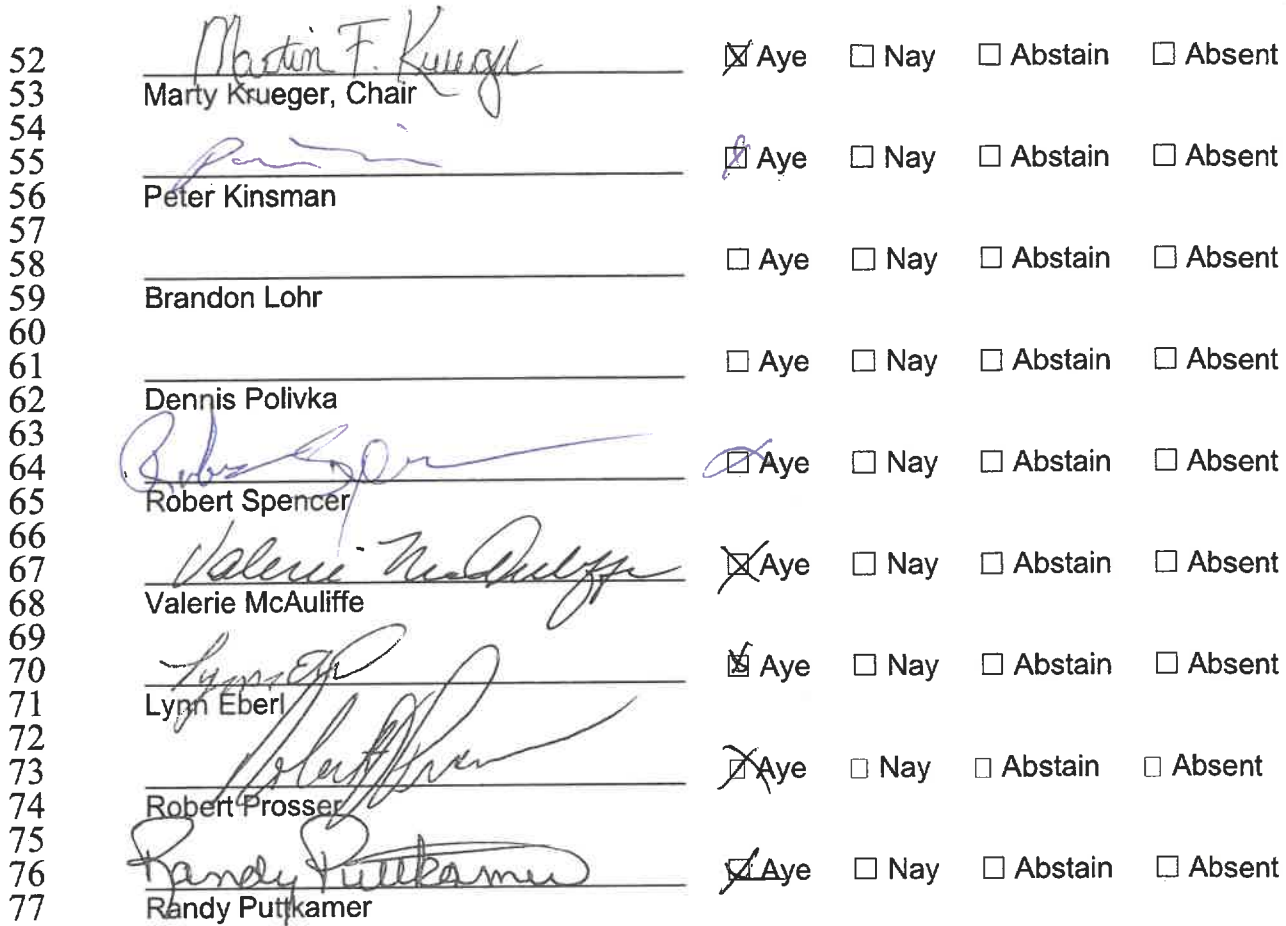 52 Martin F. Krueger ☒ Aye ☐ Nay ☐ Abstain ☐ Absent
53 Marty Krueger, Chair
54
55 ☒ Aye ☐ Nay ☐ Abstain ☐ Absent
56 Peter Kinsman
57
58 ☐ Aye ☐ Nay ☐ Abstain ☐ Absent
59 Brandon Lohr
60
61 ☐ Aye ☐ Nay ☐ Abstain ☐ Absent
62 Dennis Polivka
63
64 Robert Spencer ☒ Aye ☐ Nay ☐ Abstain ☐ Absent
65 Robert Spencer
66
67 Valerie McAuliffe ☒ Aye ☐ Nay ☐ Abstain ☐ Absent
68 Valerie McAuliffe
69
70 Lynn Eberl ☒ Aye ☐ Nay ☐ Abstain ☐ Absent
71 Lynn Eberl
72
73 Robert Prosser ☒ Aye ☐ Nay ☐ Abstain ☐ Absent
74 Robert Prosser
75
76 Randy Puttkamer ☒ Aye ☐ Nay ☐ Abstain ☐ Absent
77 Randy Puttkamer